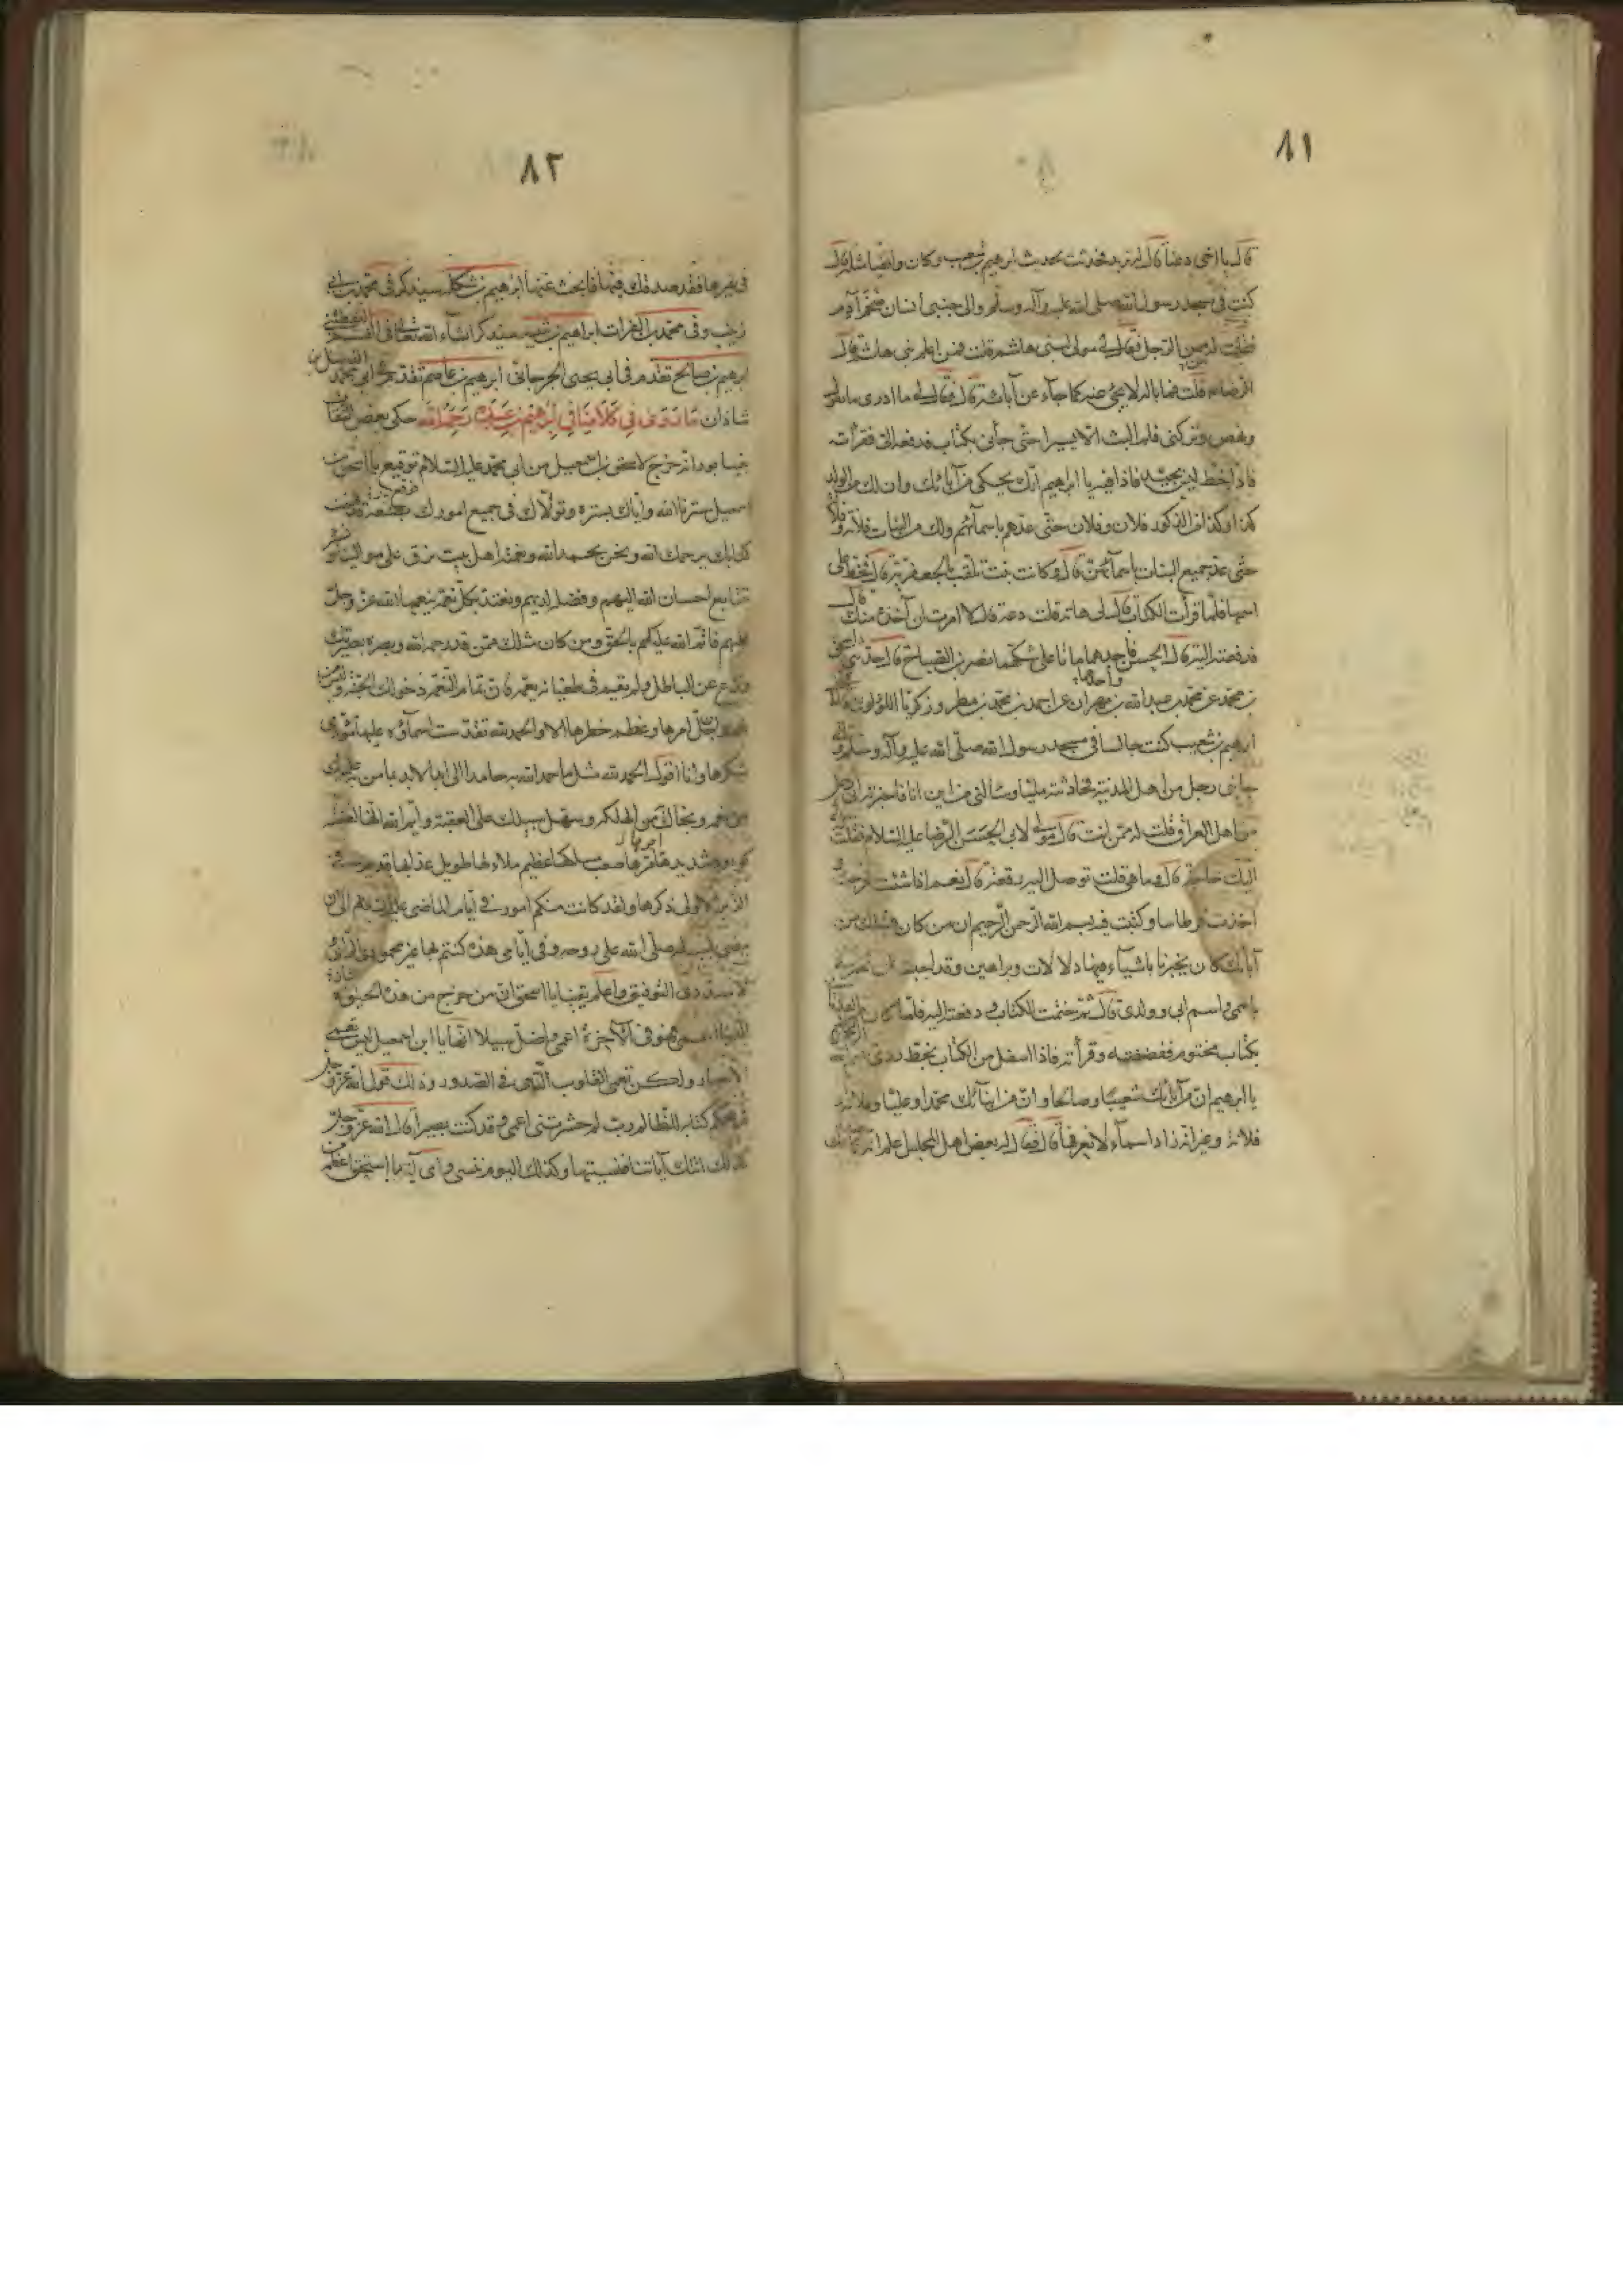 ٨١
قال يا اخى دعنا قال لم نزيد فحدثت بحديث ابرهيم بن شعيب وكان واقفيا مثله قال
كنت فى مسجد رسول الله صلى الله عليه وآله وسلم والى جنبى انسان ضخم آدم
فقلت له ممن الرجل فقال لى مولى لبنى هاشم قلت فمن اعلم بنى هاشم قال
الرضا قلت فما باله لا يجئ عنه كما جاء عن آبائه قال فقال لى ما ادرى ما تقول
ونهض وتركنى فلم البث الا يسيرا حتى جاءنى بكتاب فدفعه الى فقرأته
فاذا خط ليس بجيد فاذا فيه يا ابراهيم انك تحكى من آبائك وان لك من الولد
كذا وكذا من الذكور فلان وفلان حتى عدهم باسمائهم ولك من البنات فلانة وفلانة
حتى عد جميع البنات باسمائهن قال وكانت بنت تلقب بالجعفرية قال فخط على
اسمها فلما قرأت الكتاب قال لى هاته قلت دعه قال لا امرت ان آخذه منك قال
فدفعته اليه قال الحسن فاجدهما ماتا على شكهما نصر بن الصباح قال حدثنى اسحق
بن محمد عن محمد بن عبد الله بن مهران عن احمد بن محمد بن مطر وزكريا اللؤلؤى قالا
ابرهيم بن شعيب كنت جالسا فى مسجد رسول الله صلى الله عليه وآله وسلم و
جانبى رجل من اهل المدينة فحادثته مليا وسألنى من اين انا فاخبرته انى رجل
من اهل العراق قلت له ممن انت قال مولى لابى الحسن الرضا عليه السلام فقلت
اليك حاجة قال وما هى قلت توصل اليه رقعة قال نعم اذا شئت فخرجت
اخذت قرطاسا وكتبت فيه بسم الله الرحمن الرحيم ان من كان قبلك من
آبائك كان يخبرنا باشياء فيها دلالات وبراهين وقد احببت ان تخبرنى
باسمى واسم ابى وولدى قال ثم ختمت الكتاب ودفعته اليه فلما كان من الغد اتانى
بكتاب مختوم ففضضته وقرأته فاذا اسفل من الكتاب بخط ردى
يا ابرهيم ان من آبائك شعيبا وصالحا وان من ابنائك محمدا وعليا وفلانة
فلانة وغير انه زاد اسماء لا نعرفها قال فقال له بعض اهل المجلس اعلم انه
٨٢
فى غيرها فقد صدقك فيها فابحث عنها ابرهيم بن شكله سيذكر فى محمد بن ابى
زينب وفى محمد بن الفرات ابراهيم بن شيبه سيذكر ان شاء الله تعالى فى القسم
ابرهيم بن صالح تقدم فى ابى يحيى الجرجانى ابرهيم بن عاصم تقدم عن ابى محمد الفضل بن
شاذان ما روى فى ابرهيم بن عبده رحمه الله حكى بعض الثقات
بنيسابور انه خرج لاسحق بن اسمعيل من ابى محمد عليه السلام توقيع يا اسحق بن
اسمعيل سترنا الله واياك بستره وتولاك فى جميع امورك بصنعه فهمت
كتابك يرحمك الله ونحن بحمد الله ونعمته اهل بيت نرق على موالينا ونسر
بتتابع احسان الله اليهم وفضله لديهم ونعتد بكل نعمة ينعمها الله عز وجل
عليهم فاتم الله عليكم بالحق ومن كان مثلك ممن قد رحمه الله وبصره بصيرتك
ونزع عن الباطل ولم يقم فى طغيانه بعمه فان تمام النعمة دخولك الجنة وليس من
نعمة وان جل امرها وعظم خطرها الا والحمد لله تقدست اسماؤه عليها مؤدى
شكرها وانا اقول الحمد لله مثل ما حمد الله به حامد الى ابد الابد بما من به عليك
من نعمه ونجاك من الهلكة وسهل سبيلك على العقبة وايم الله انها لعقبة
كؤود شديد امرها صعب مسلكها عظيم بلاءها طويل عذابها قديم فى
الزبر الاولى ذكرها ولقد كانت منكم امور فى ايام الماضى عليه السلام الى ان
مضى لسبيله صلى الله على روحه وفى ايامى هذه كنتم بها غير محمودى الرأى
ولا مسددى التوفيق واعلم يقينا يا اسحق ان من خرج من هذه الحيوة
الدنيا اعمى فهو فى الآخرة اعمى واضل سبيلا انها يا ابن اسمعيل ليس تعمى
الابصار ولكن تعمى القلوب التى فى الصدور وذلك قول الله عز وجل
فى محكم كتابه للظالم رب لم حشرتنى اعمى وقد كنت بصيرا قال الله عز وجل
كذلك اتتك آياتنا فنسيتها وكذلك اليوم تنسى واى آية يا اسحق اعظم من